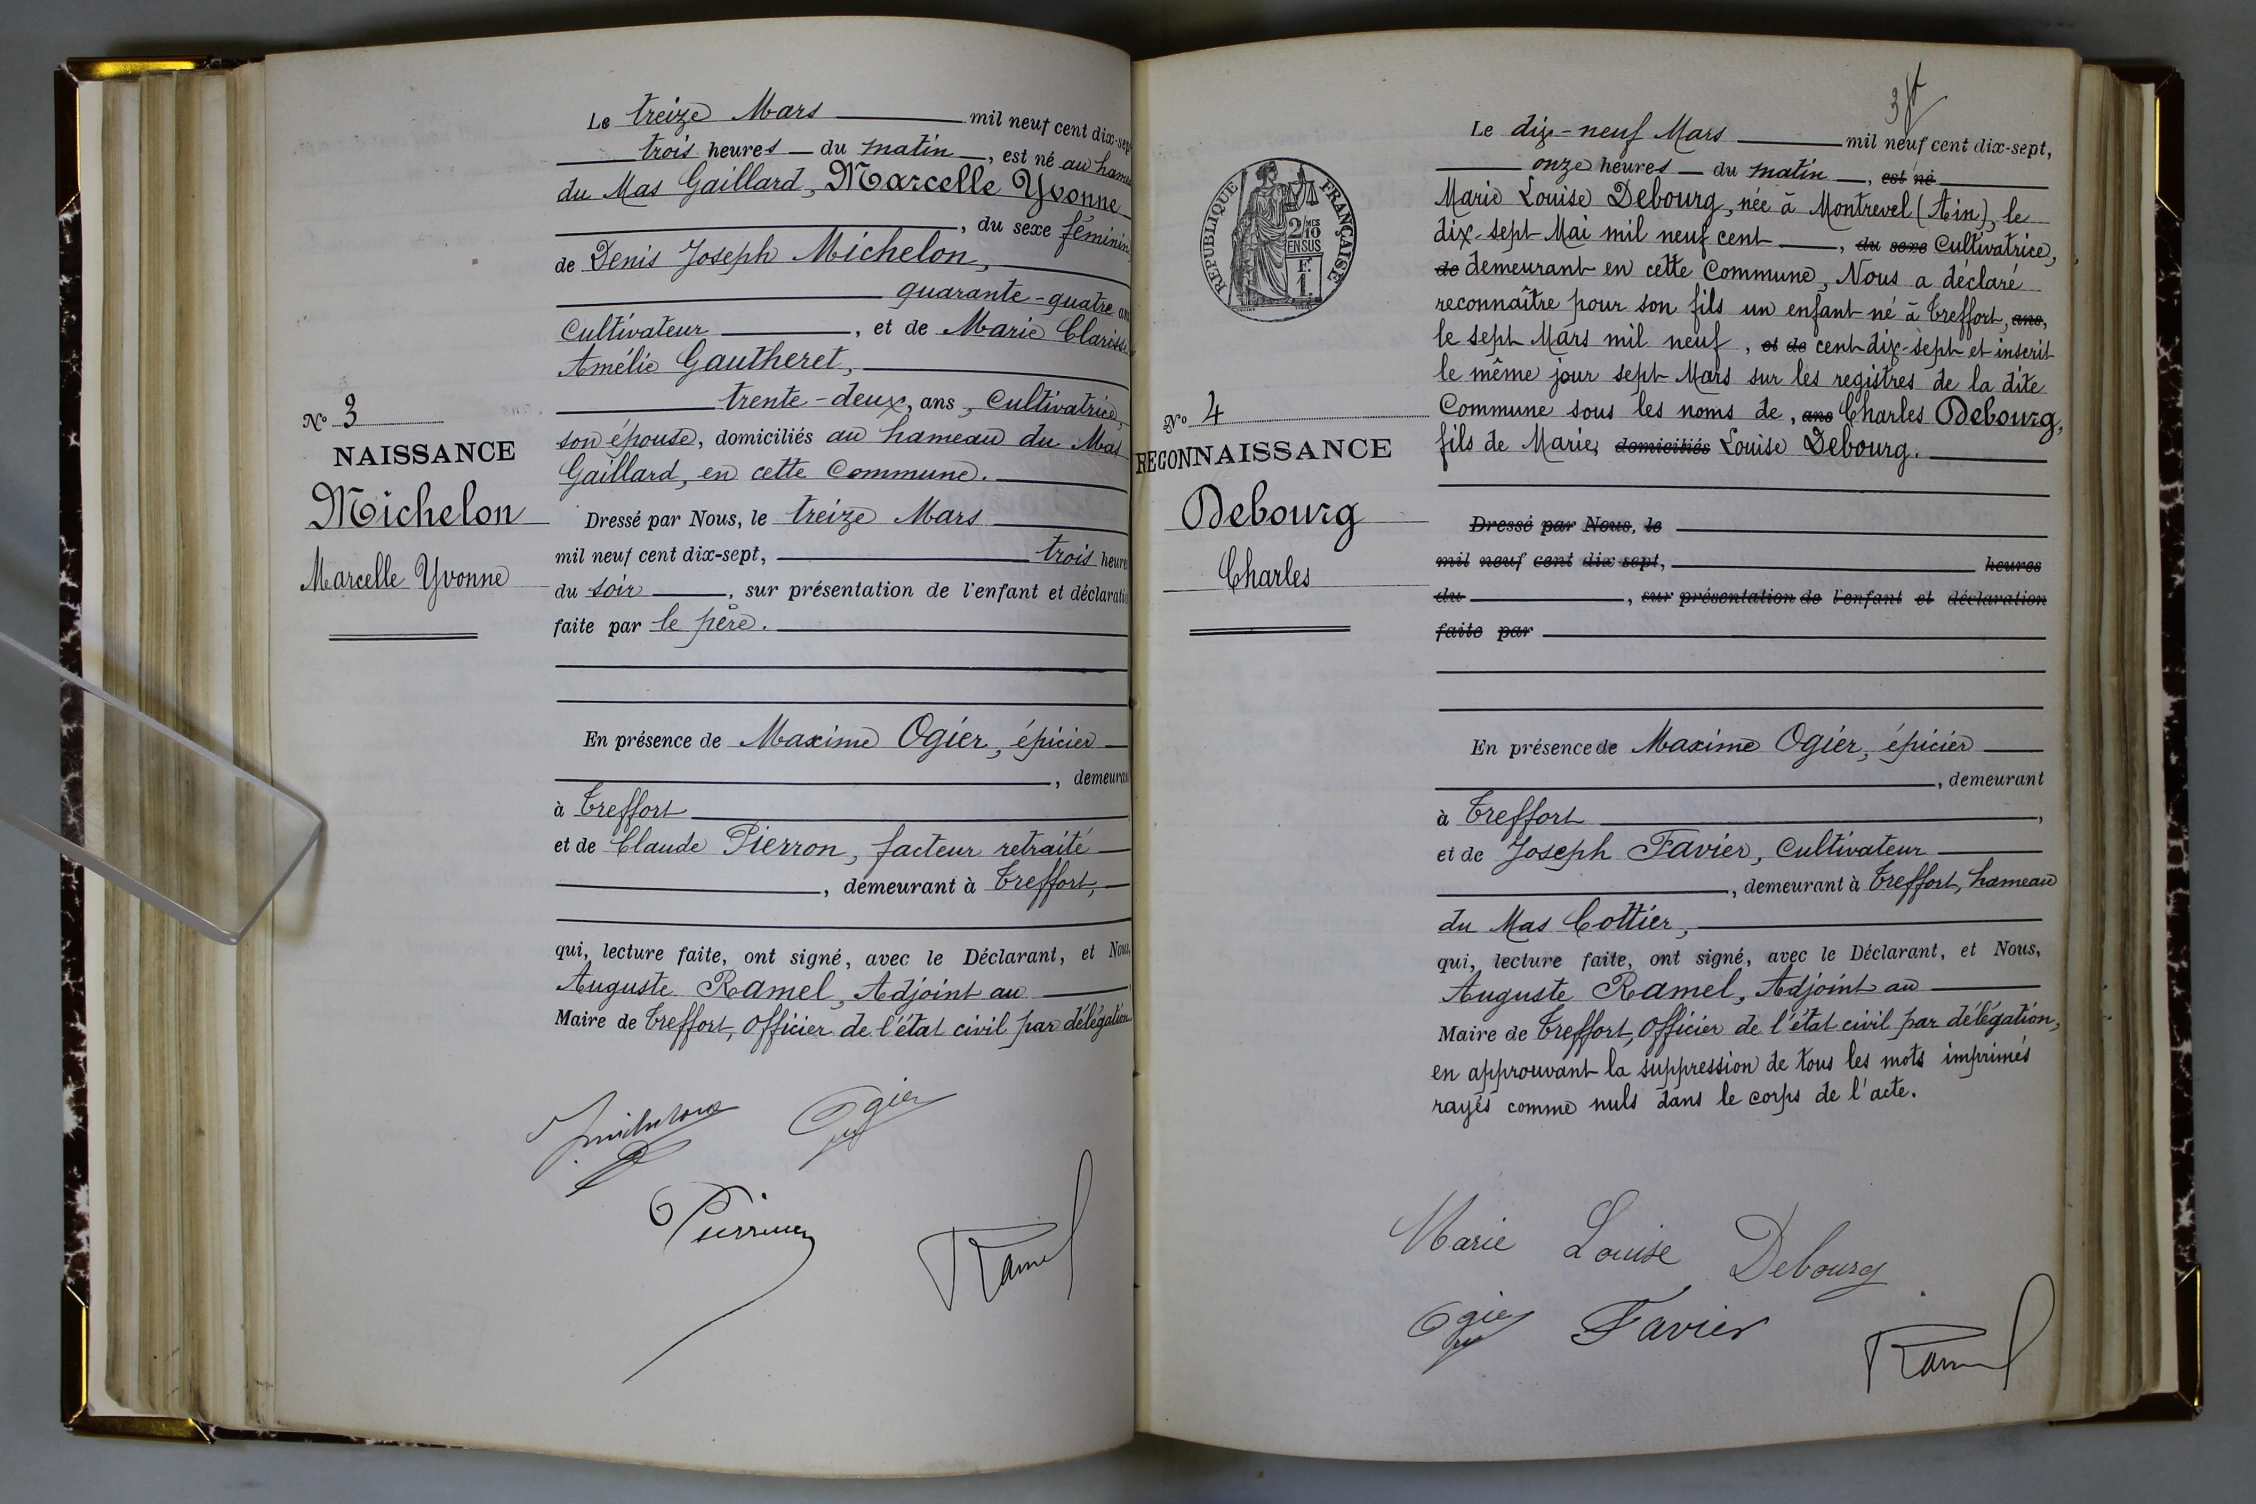 Le treize Mars mil neuf cent dix-sept
trois heures du matin, est né au hameau
du Mas Gaillard, Marcelle Yvonne
, du sexe féminin,
de Denis Joseph Michelon,
quarante-quatre ans
Cultivateur, et de Marie Clarisse
Amélie Gautheret,
trente-deux, ans, Cultivatrice,
son épouse, domiciliés au hameau du Mas
Gaillard, en cette Commune.
Dressé par Nous, le treize Mars
mil neuf cent dix-sept, trois heures
du soir, sur présentation de l'enfant et déclaration
faite par le père.
En présence de Maxime Ogier, épicier
, demeurant
à Treffort
et de Claude Pierron, facteur retraité
, demeurant à Treffort,
qui, lecture faite, ont signé, avec le Déclarant, et Nous,
Auguste Ramel, Adjoint au
Maire de Treffort, Officier de l'état civil par délégation
Nº 3
NAISSANCE
Michelon
Marcelle Yvonne
Ogier
Ramel
Le dix-neuf Mars mil neuf cent dix-sept,
onze heures du matin, est né
Marie Louise Debourg, née à Montrevel (Ain), le
dix-sept Mai mil neuf cent, du sexe Cultivatrice,
de demeurant en cette Commune, Nous a déclaré
reconnaître pour son fils un enfant né à Treffort, ans,
le sept Mars mil neuf, et de cent dix-sept et inscrit
le même jour sept Mars sur les registres de la dite
Commune sous les noms de, ans Charles Debourg,
fils de Marie, domiciliés Louise Debourg.
Dressé par Nous, le
mil neuf cent dix sept, heures
du, sur présentation de l'enfant et déclaration
faite par
En présence de Maxime Ogier, épicier
, demeurant
à Treffort,
et de Joseph Favier, Cultivateur
, demeurant à Treffort, hameau
du Mas Cottier,
qui, lecture faite, ont signé, avec le Déclarant, et Nous,
Auguste Ramel, Adjoint au
Maire de Treffort, Officier de l'état civil par délégation,
en approuvant la suppression de tous les mots imprimés
rayés comme nuls dans le corps de l'acte.
RÉPUBLIQUE FRANÇAISE
2/10 MES
EN SUS
F.
1.
Nº 4
RECONNAISSANCE
Debourg
Charles
Marie Louise Debourg
Ogier Favier
Ramel